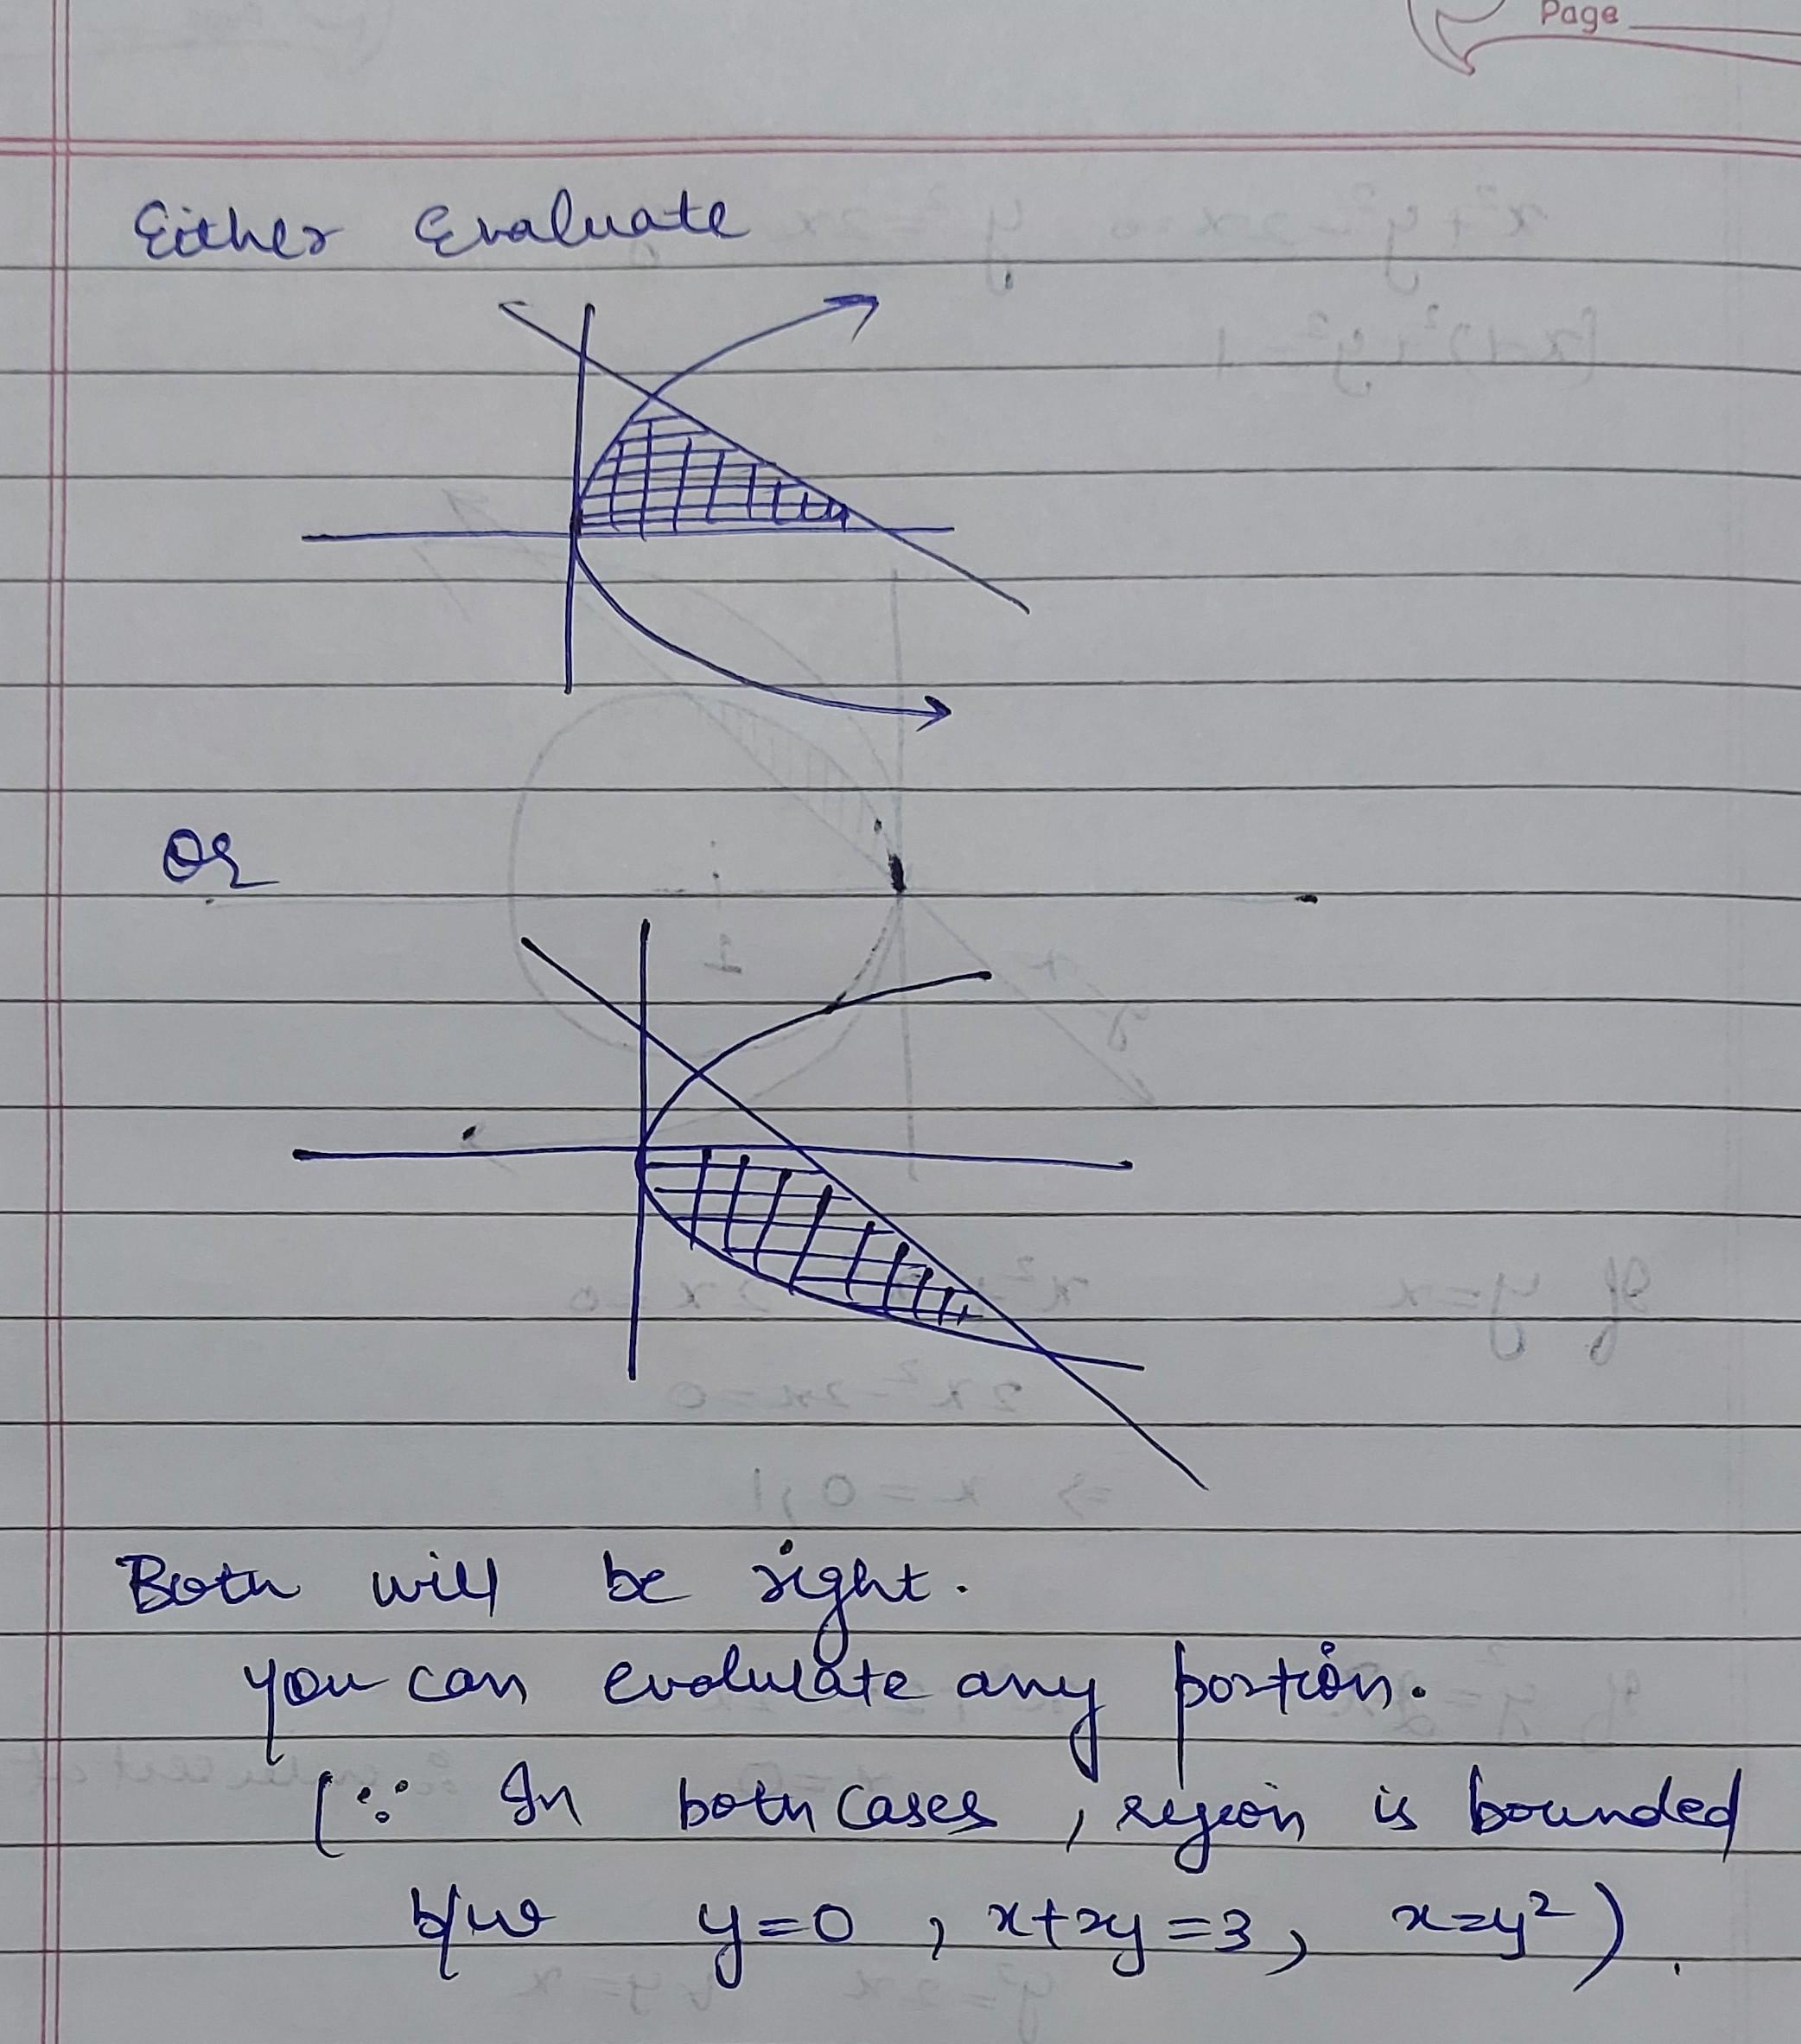 Page
Either Evaluate
Or
Both will be right.
you can evalulate any portion.
(∵ In both cases , region is bounded
b/w y=0 , x+xy=3, x=y²)